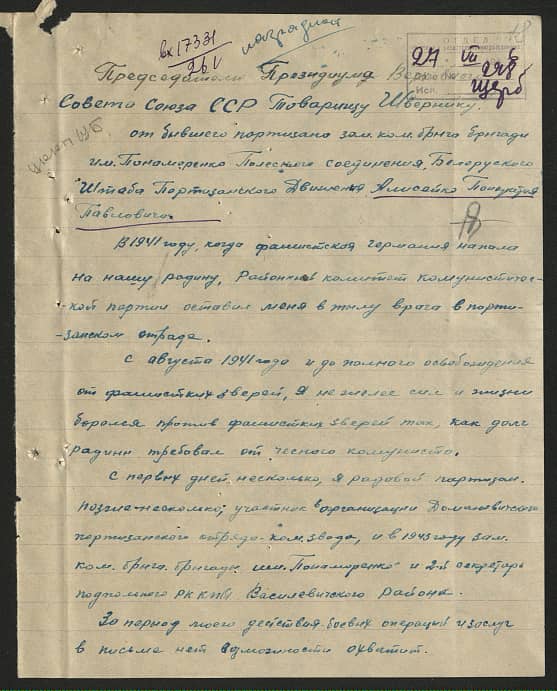 вх 17331
26 V
наградной
18
ОТДЕЛ
27 VII
Председателю Президиума Верховного
Совета Союза ССР Товарищу Швернику
от бывшего партизана зам. ком. брига бригады
им. Пономаренко Полеского соединения, Белоруского
Штаба Партизанского Движения,
Павловича.
В 1941 году, когда фашистская германия напала
на нашу родину, Районный комитет комунистичес-
-кой партии оставил меня в тылу врага в парти-
-занском отряде.
С августа 1941 года и до полного освобождения
от фашистких зверей, Я не жалея сил и жизни
боролся против фашистких зверей так, как долг
родины требовал от чесного комуниста.
С первых дней несколько, я рядовой партизан.
Позже несколько, участник в организации
партизанского отряда - ком. звода, и в 1943 году зам.
ком. брига. бригады им. Пономаренко и 2-й секретарь
подпольного РК КП(б) Василевичского района.
За период моего действия боевых операций и заслуг
в письме нет возможности охватит.